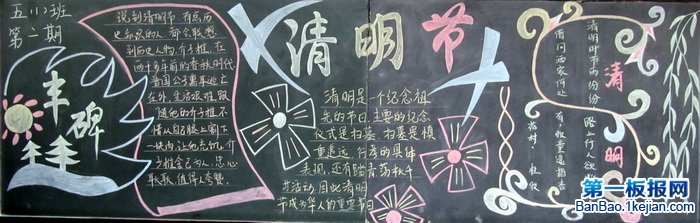 五(1)班
第二期
丰碑
说到清明节,有点历
史知识的人,都会联想
到历史人物介子推。在
两千多年前的春秋时代
晋国公子重耳逃亡
在外,生活艰难,跟
随他的介子推不
惜从自己腿上割下
一块肉让他充饥,介
子推舍己为人,忠心
耿耿,值得
清明节
清明是一个纪念祖
先的节日。主要的纪念
仪式是扫墓,扫墓是慎
重追远、行孝的具体
表现,还有踏青荡秋千
等活动,因此清明
节成为华人的重要节日
清明
清明时节雨纷纷
路上行人欲
借问酒家何处
有 牧童遥指杏
花村
杜牧
第一板报网
BanBao.1kejian.com